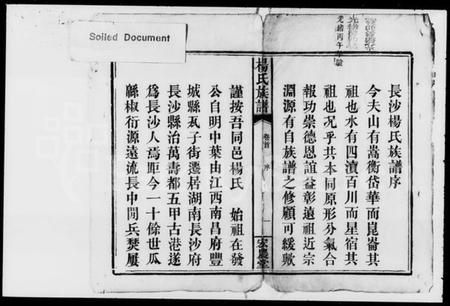 Soiled Document
光緒丙午年
長沙楊氏族譜序
今夫山有嵩衡岱華而崑崙其
祖也水有四瀆百川而星宿其
祖也况乎共本同原形分氣合
報功崇德恩誼益彰遠祖近宗
淵源有自族譜之修顧可緩歟
楊氏族譜
卷首
序
一
宏農堂
謹按吾同邑楊氏 始祖在發
公自明中葉由江西南昌府豐
城縣瓦子街遷居湖南長沙府
長沙縣治萬壽都五甲古港遂
爲長沙人焉距今一十餘世瓜
緜椒衍源遠流長中閒兵燹屢